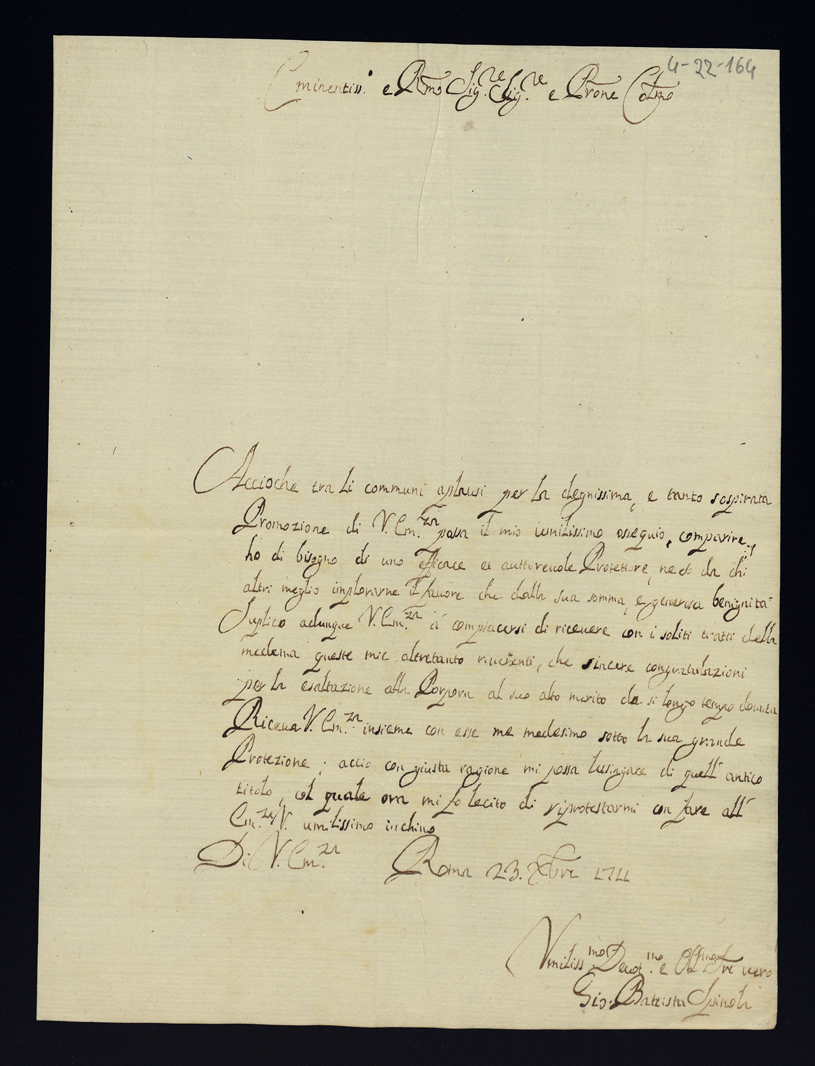 4-22-164
Eminentiss.º e Rmo Sig.re Sig.re e Prone Colmo
Accioche tra li communi aplausi per la degnissima, e tanto sospirata
Promozione di V. Em.za possa il mio umilissimo ossequio, comparire,
hò di bisogno di uno efficace et auttoreuole Protettore, ne sò da chi
altri meglio implorarne il fauore che dalla sua somma, e generosa benignità
Suplico adunque V. Em.za à compiacersi di riceuere con i soliti tratti della
medema queste mie altretanto riuerenti, che sincere congratulazioni
per la esaltazione alla Porpora al suo alto merito da si longo tempo douuta
Riceua V. Em.za insieme con esse me medesimo sotto la sua grande
Protezione; acciò con giusta ragione mi possa lusingare di quell' antico
titolo, col quale ora mi fo lecito di riprotestarmi con fare all'
Em.za V. umilissimo inchino
Di V. Em.za Roma 23. Xbre 1711
Vmiliss.mo Deuot.mo e Obl.mo Sre uero
Gio. Battista Spinola